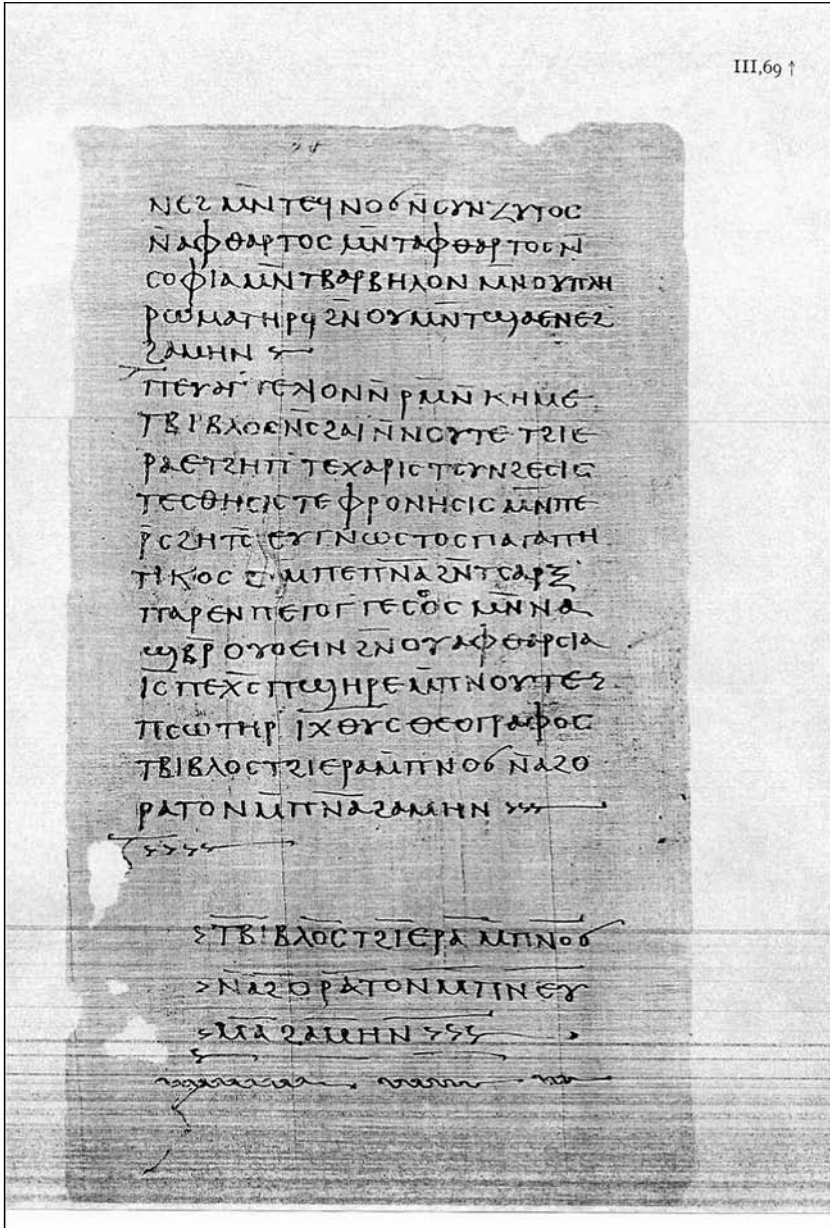 III,69 ↑
ⲛⲉϩ ⲙⲛ̄ ⲧⲉϥⲛⲟϭ ⲛ̄ⲥⲩⲛⲍⲩⲅⲟⲥ
ⲛ̄ⲁⲫⲑⲁⲣⲧⲟⲥ ⲙⲛ̄ ⲧⲁⲫⲑⲁⲣⲧⲟⲥ ⲛ̄
ⲥⲟⲫⲓⲁ ⲙⲛ̄ ⲧⲃⲁⲣⲃⲏⲗⲟⲛ ⲙⲛ̄ ⲟⲩⲡⲗⲏ
ⲣⲱⲙⲁ ⲧⲏⲣϥ ϩⲛ̄ ⲟⲩⲙⲛ̄ⲧϣⲁⲉⲛⲉϩ
ϩⲁⲙⲏⲛ >—
ⲡⲉⲩⲁⲅⲅⲉⲗⲓⲟⲛ ⲛ̄ⲣⲙ̄ⲛ̄ⲕⲏⲙⲉ
ⲧⲃⲓⲃⲗⲟⲥ ⲛ̄ⲥϩⲁⲓ̈ ⲛ̄ⲛⲟⲩⲧⲉ ⲧϩⲓⲉ
ⲣⲁ ⲉⲧϩⲏⲡ ⲧⲉⲭⲁⲣⲓⲥ ⲧⲥⲩⲛϩⲉⲥⲓⲥ
ⲧⲉⲥⲑⲏⲥⲓⲥ ⲧⲉⲫⲣⲟⲛⲏⲥⲓⲥ ⲙⲛ̄ ⲡⲉ
ⲣ̄ⲥϩⲏⲧⲥ̄ ⲉⲩⲅⲛⲱⲥⲧⲟⲥ ⲡⲁⲅⲁⲡⲏ
ⲧⲓⲕⲟⲥ ϩⲙ̄ ⲡⲉⲡⲛ̄ⲁ̄ ϩⲛ̄ ⲧⲥⲁⲣⲝ
ⲡⲁⲣⲉⲛ ⲡⲉ ⲅⲟⲅⲅⲉⲥⲥⲟⲥ ⲙⲛ̄ ⲛⲁ
ϣⲃⲣ̄ⲟⲩⲟⲉⲓⲛ ϩⲛ̄ ⲟⲩⲁⲫⲑⲁⲣⲥⲓⲁ
ⲓ̄ⲥ̄ ⲡⲉⲭ̄ⲥ̄ ⲡϣⲏⲣⲉ ⲙ̄ⲡⲛⲟⲩⲧⲉ
ⲡⲥⲱⲧⲏⲣ ⲓ̄ⲭ̄ⲑ̄ⲩ̄ⲥ̄ ⲑⲉⲟⲅⲣⲁⲫⲟⲥ
ⲧⲃⲓⲃⲗⲟⲥ ⲧϩⲓⲉⲣⲁ ⲙ̄ⲡⲛⲟϭ ⲛ̄ⲁϩⲟ
ⲣⲁⲧⲟⲛ ⲙ̄ⲡⲛ̄ⲁ̄ ϩⲁⲙⲏⲛ >>>—
>>>>—
>ⲧⲃⲓⲃⲗⲟⲥ ⲧϩⲓⲉⲣⲁ ⲙ̄ⲡⲛⲟϭ
>ⲛ̄ⲁϩⲟⲣⲁⲧⲟⲛ ⲙ̄ⲡⲛⲉⲩ
>ⲙⲁ ϩⲁⲙⲏⲛ >>>—